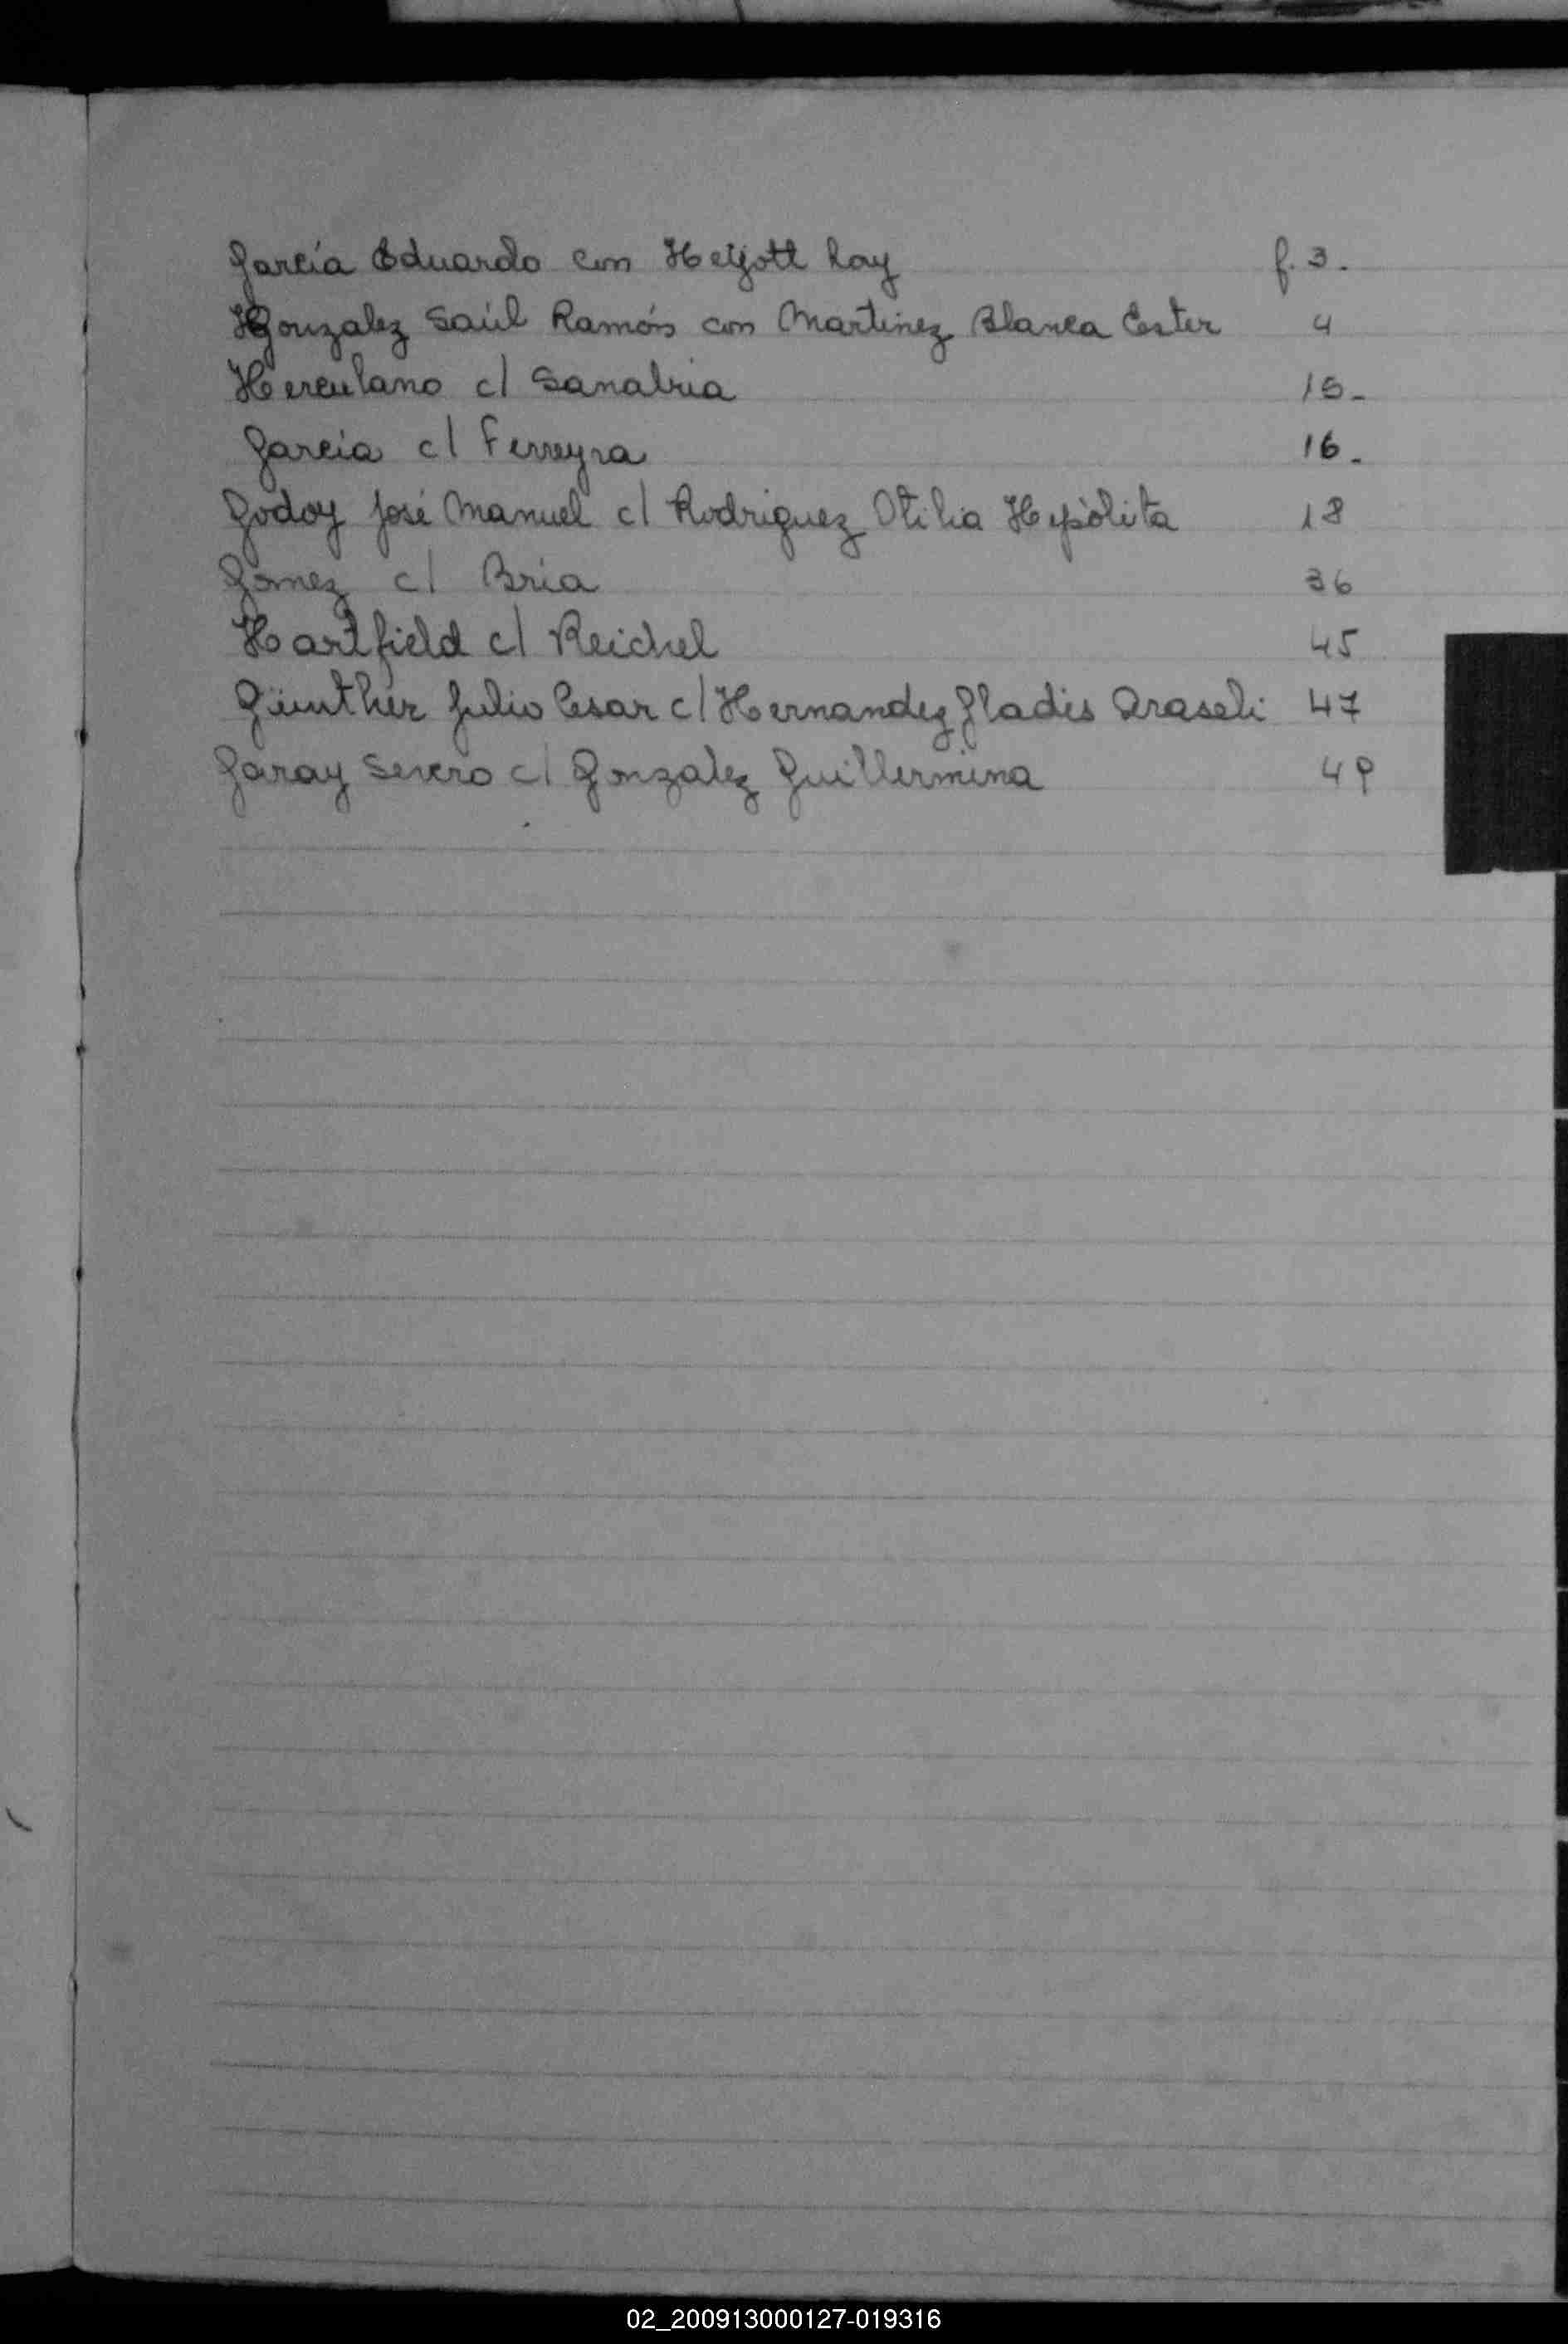 García Eduardo con Heyott Ray f. 3.
Gonzalez Saúl Ramón con Martinez Blanca Ester 4
Herculano c/ Sanabria 15-
García c/ Ferreyra 16-
Godoy José Manuel c/ Rodriguez Otilia Hipólita 18
Gomez c/ Bria 36
Hartfield c/ Reichel 45
Günther Julio Cesar c/ Hernandez Gladis Araseli 47
Garay Severo c/ Gonzalez Guillermina 49
02_200913000127-019316